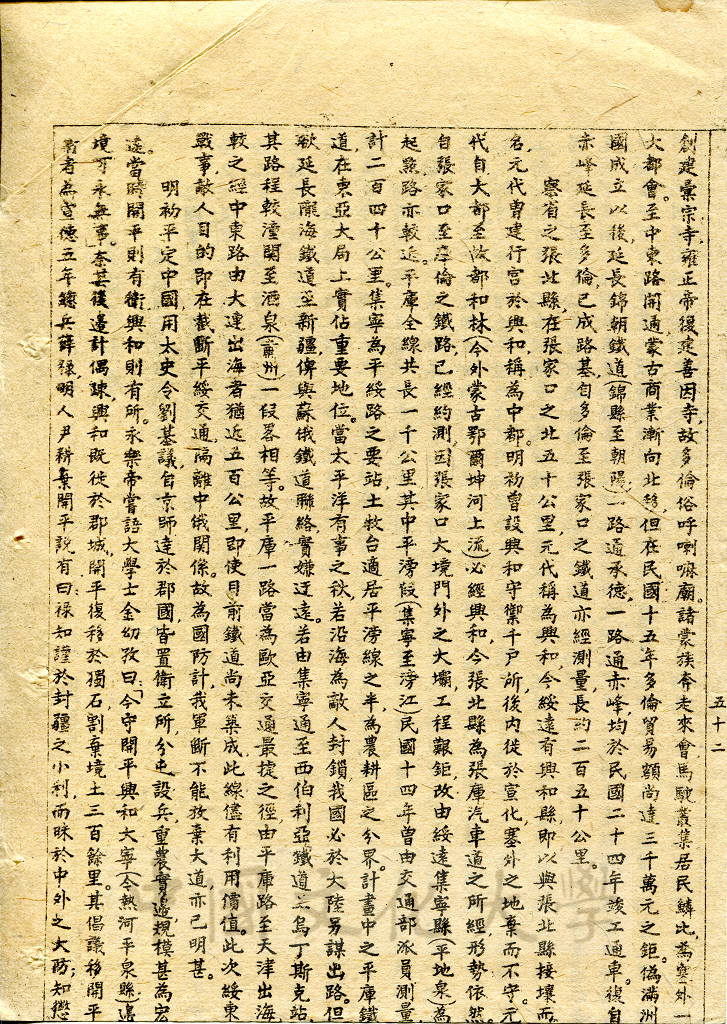 創建彙宗寺,雍正帝復建善因寺,故多倫俗呼喇嘛廟。諸蒙族奔走來會,馬駝叢集居民鱗比,為塞外一
大都會。至中東路開通,蒙古商業漸向北移,但在民國十五年多倫貿易額尚達三千萬元之鉅。偽滿洲
國成立以後,延長錦朝鐵道(錦縣至朝陽)一路通承德,一路通赤峰均於民國二十四年竣工通車。復自
赤峰延長至多倫,已成路基,自多倫至張家口之鐵道亦經測量,長約二百五十公里。
察省之張北縣,在張家口之北五十公里,元代稱為興和,今綏遠有興和縣,即以與張北縣接壤而
名。元代曾建行宮於興和稱為中都。明初曾設興和守禦千戶所,後內徙於宣化,塞外之地棄而不守。元
代自大都至故都和林(今外蒙古鄂爾坤河上流)必經興和,今張北縣為張庫汽車道之所經,形勢依然。
自張家口至庫倫之鐵路,已經約測,因張家口大境門外之大壩,工程艱鉅,改由綏遠集寧縣(平地泉)為
起點,路亦較近。平庫全線共長一千公里,其中平滂段(集寧至滂江)民國十四年曾由交通部派員測量,
計二百四十公里。集寧為平綏路之要站,土牧台適居平滂線之半,為農耕區之分界。計畫中之平庫鐵
道,在東亞大局上實佔重要地位。當太平洋有事之秋,若沿海為敵人封鎖,我國必於大陸另謀出路。但
欲延長隴海鐵道至新疆,俾與蘇俄鐵道聯絡,實嫌迂遠。若由集寧通至西伯利亞鐵道上烏丁斯克站,
其路程較潼關至酒泉(肅州)一段畧相等。故平庫一路當為歐亞交通最捷之徑,由平庫路至天津出海,
較之經中東路由大連出海者猶近五百公里,即使目前鐵道尚未築成,此線儘有利用價值。此次綏東
戰事,敵人目的即在截斷平綏交通,隔離中俄關係。故為國防計,我軍斷不能放棄大道,亦已明甚。
明初平定中國,用太史令劉基議,自京師達於郡國,皆置衛立所,分屯設兵,重農實邊,規模甚為宏
遠。當時開平則有衛,興和則有所。永樂帝嘗語大學士金幼孜曰:「今守開平興和大寧(今熱河平泉縣)邊
境可永無事。奈其後邊計偶疎,興和既徙於郡城,開平復移於獨石,割棄境土三百餘里。其倡議移開平
衛者為宣德五年總兵薛祿,明人尹耕棄開平說有曰:祿知謹於封疆之小利,而昧於中外之大防;知懲
五十二
中國文化大學